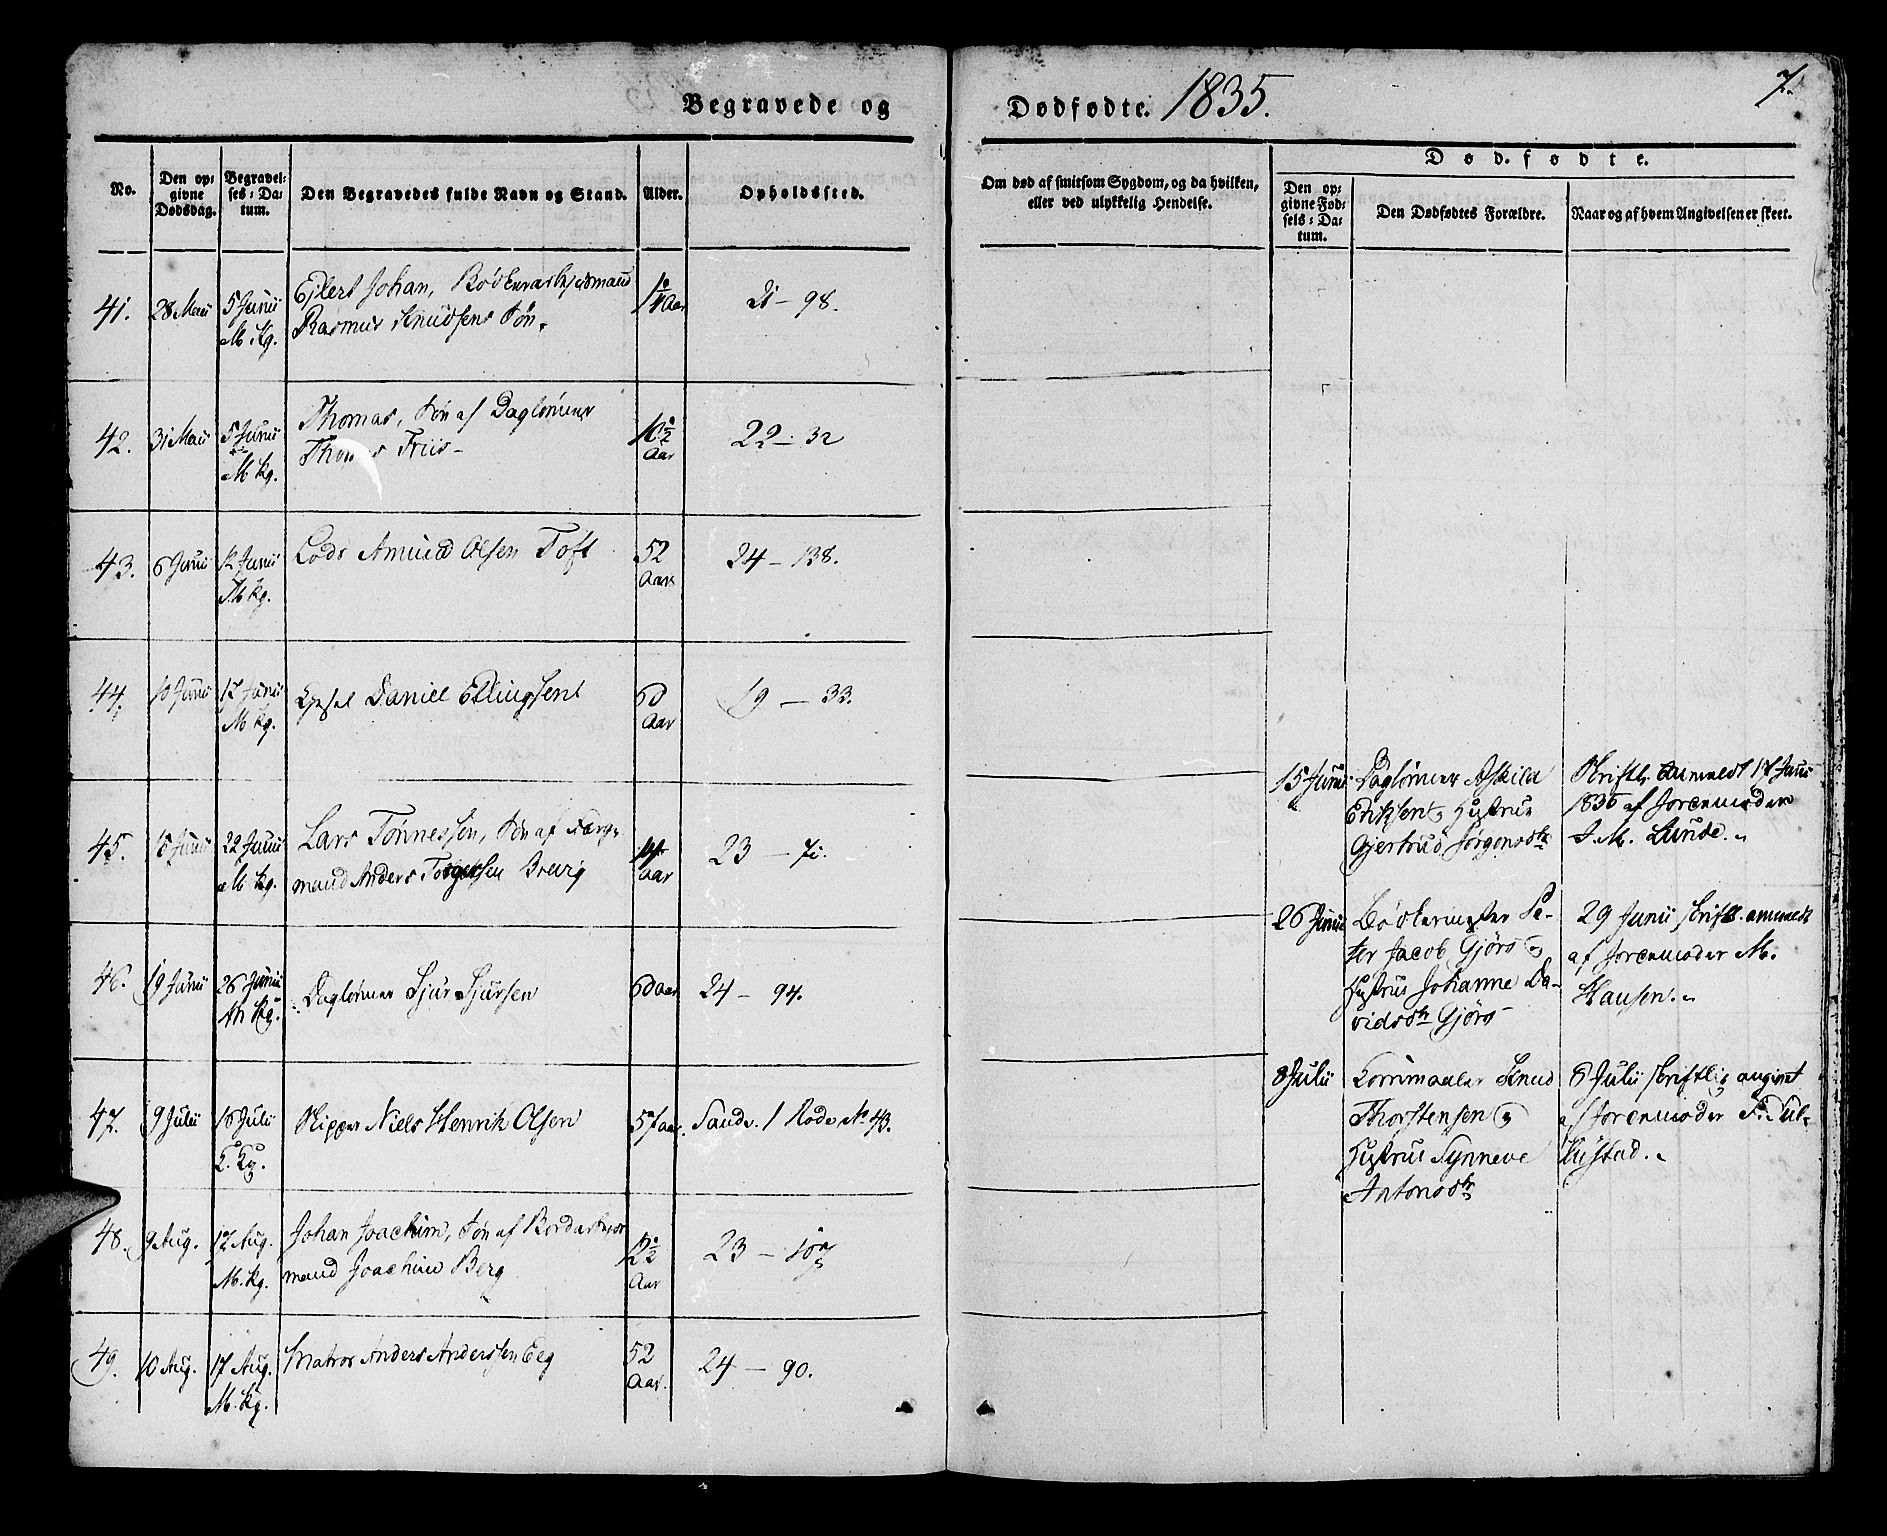 Begravede og Dødfødte. 1835. 7.
No.
Den op-
givne
Dødsdag.
Begravel-
ses-Da-
tum.
Den Begravedes fulde Navn og Stand.
Alder.
Opholdssted.
Om død af smitsom Sygdom, og da hvilken,
eller ved ulykkelig Hendelse.
Dødfødte.
Den op-
givne Fød-
sels-Da-
tum.
Den Dødfødtes Forældre.
Naar og af hvem Angivelsen er skeet.
41. 28 Maii 5 Junii
M Kg.
Ejlert Johan,
Rasmus Knudsens Søn.
1¼ Aar
21 - 98.
42. 31 Maii 5 Junii
M Kg.
Thomas, Søn af Dagleiner
Thomas Friis -
½
Aar
22 - 32
43. 6 Junii 12 Junii
M Kg.
Lods Amund Olsen Toft
52
Aar
24 - 138.
44. 10 Junii 17 Junii
M Kg.
Daniel Ellingsen
60
Aar
19 - 33.
45. 15 Junii 22 Junii
M Kg.
Lars Tønnessen, Søn af
mand Anders Brevig
Aar
23 - 71.
46. 19 Junii 26 Junii
Kg.
Dagleiner Sjur Sjursen
60 aar
24 - 94.
47. 9 Julii 16 Julii
Kg.
Skipper Niels Henrik Olsen
57 aar.
Sandv. 1 Rode No 43.
48. 9 Aug. 17 Aug.
M. Kg.
Johan Joachim, Søn af
mand Joachim Berg
2½
Aar
23 - 107
49. 10 Aug. 17 Aug.
M. Kg.
Matros Anders Anderssen Eeg
52
Aar.
24 - 90.
15 Junii
Dagleiner Askild
Eriksen og Hustrue
Gjertrud Jørgensdtr
Skriftl. anmeldt 17 Junii
1835 af Jordemoder
M. Lunde.
26 Junii
Bødkermester Pe-
ter Jacob Gjørs og
Hustrue Johanne Da-
vidsdtr Gjørs
29 Junii skriftl. anmeldt
af Jordemoder M.
Hansen.
8 Julii
Kornmaaler Knud
Thorstensen og
Hustrue Synneve
Antonsdtr
8 Julii skriftlig angivet
af Jordemoder